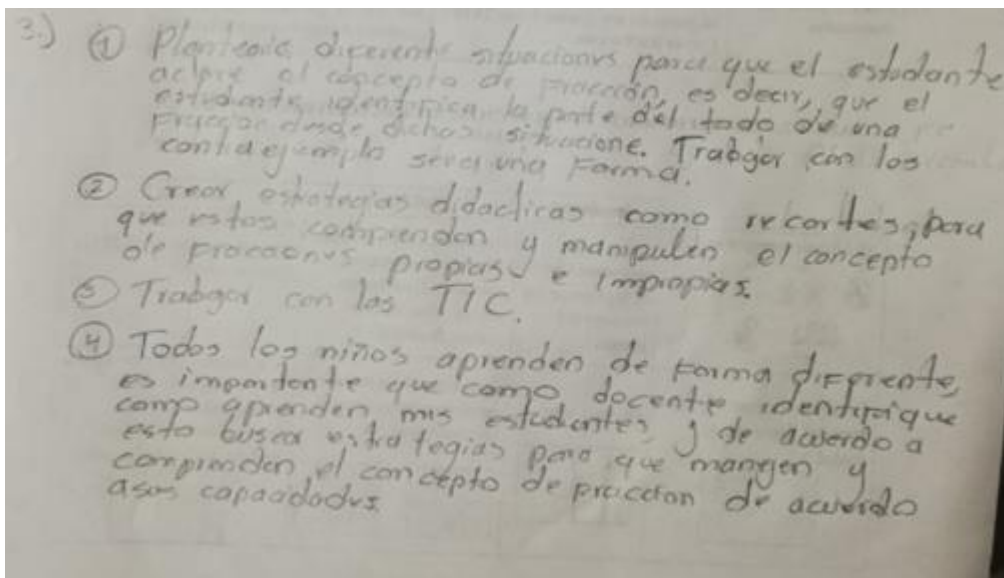 3.) ① Plantearia diferente situacions para que el estudante
aclare el concepto de Fracción, es decir, que el
estudiante identifica la parte del todo de una
Fraccion desde dichas situacione. Trabajar con los
contraejemplo seria una Forma.
② Crear estrategias didacticas como recortes, para
que estos comprendan y manipulen el concepto
de fracciones propias e Impropias.
③ Trabajar con las TIC.
④ Todos los niños aprenden de Forma diFerente,
es importante que como docente identifique
como aprenden mis estudiantes, y de acuerdo a
esto buscar estrategias para que manejen y
comprenden el concepto de fraccion de acuerdo
a sus capacidades.